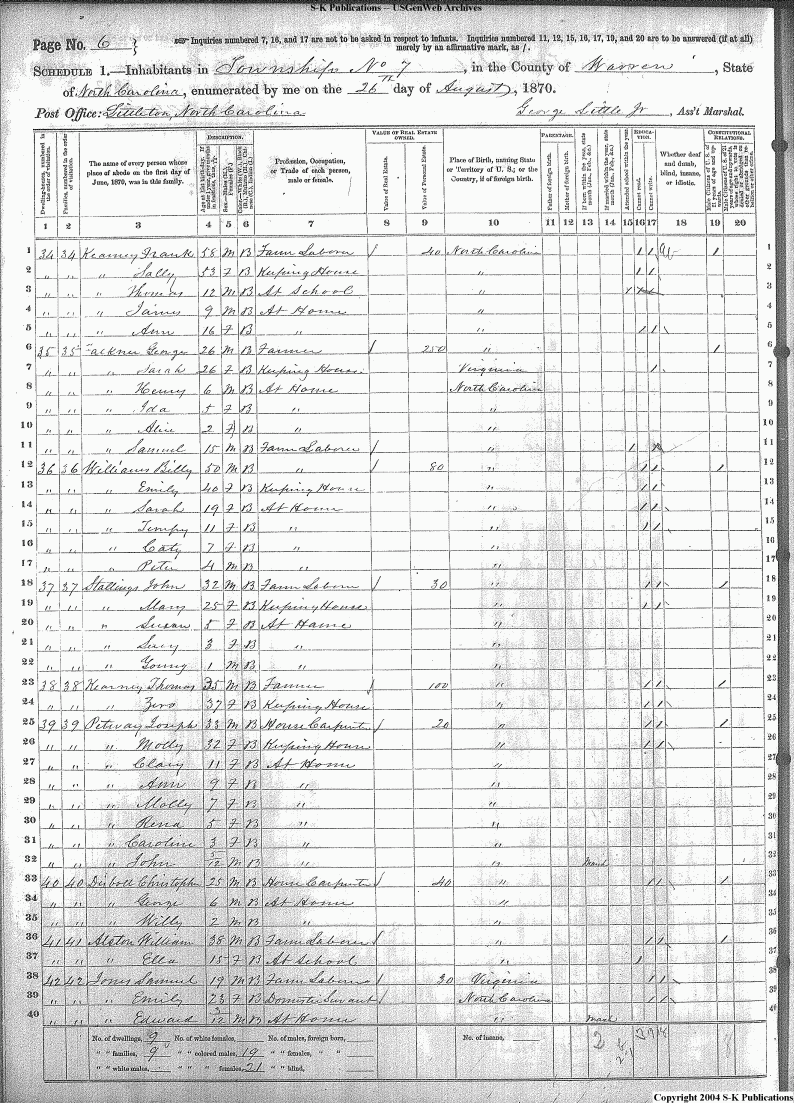 S-K Publications – USGenWeb Archives
Page No. 6 } Inquiries numbered 7, 16, and 17 are not to be asked in respect to infants. Inquiries numbered 11, 12, 15, 16, 17, 19, and 20 are to be answered (if at all) merely by an affirmative mark, as /.
SCHEDULE 1.—Inhabitants in Townships No 7, in the County of Warren, State
of North Carolina, enumerated by me on the 26th day of August, 1870.
Post Office: Littleton, North Carolina George Little Jr, Ass't Marshal.
DESCRIPTION. VALUE OF REAL ESTATE OWNED. PARENTAGE. EDUCATION. CONSTITUTIONAL RELATIONS.
Dwelling-houses, numbered in the order of visitation. Families, numbered in the order of visitation. The name of every person whose place of abode on the first day of June, 1870, was in this family. Profession, Occupation, or Trade of each person, male or female. Value of Real Estate. Value of Personal Estate. Place of Birth, naming State or Territory of U. S.; or the Country, if of foreign birth. Father of foreign birth. Mother of foreign birth. Attended school within the year. Cannot read. Cannot write. Whether deaf and dumb, blind, insane, or idiotic.
1 2 3 4 5 6 7 8 9 10 11 12 13 14 15 16 17 18 19 20
1 34 34 Kearney Frank 58 M B Farm Laborer / 40 North Carolina / / / 1
2 " " " Sally 53 F B Keeping House " / / 2
3 " " " Thomas 12 M B At School " / 3
4 " " " James 9 M B At Home " 4
5 " " " Ann 16 F B " " / / 5
6 35 35 Falkner George 26 M B Farmer / 250 " / 6
7 " " " Sarah 26 F B Keeping House Virginia / 7
8 " " " Henry 6 M B At Home North Carolina 8
9 " " " Ida 5 F B " " 9
10 " " " Alice 2 F B " " 10
11 " " " Samuel 15 M B Farm Laborer / " / 11
12 36 36 Williams Billy 50 M B " / 80 " / / / 12
13 " " " Emily 40 F B Keeping House " / / 13
14 " " " Sarah 19 F B At Home " / / 14
15 " " " Tempy 11 F B " " / / 15
16 " " " Caty 7 F B " " 16
17 " " " Peter 4 M B " " 17
18 37 37 Stallings John 32 M B Farm Laborer / 30 " / / / 18
19 " " " Mary 25 F B Keeping House " / / 19
20 " " " Susan 5 F B At Home " 20
21 " " " Lucy 3 F B " " 21
22 " " " Young 1 M B " " 22
23 38 38 Kearney Thomas 35 M B Farmer / 100 " / / / 23
24 " " " Zero 37 F B Keeping House " / / 24
25 39 39 Petway Joseph 33 M B House Carpenter / 20 " / / / 25
26 " " " Molly 32 F B Keeping House " / / 26
27 " " " Clary 11 F B At Home " 27
28 " " " Ann 9 F B " " 28
29 " " " Molly 7 F B " " 29
30 " " " Rena 5 F B " " 30
31 " " " Caroline 3 F B " " 31
32 " " " John 3/12 M B " " March 32
33 40 40 Christopher 25 M B House Carpenter / 40 " / / / 33
34 " " " George 6 M B At Home " 34
35 " " " Willy 2 M B " " 35
36 41 41 Alston William 38 M B Farm Laborer / " / / / 36
37 " " " Ella 15 F B At School " / 37
38 42 42 Jones Samuel 19 M B Farm Laborer / 30 Virginia / / 38
39 " " " Emily 23 F B Domestic Servant / North Carolina / / 39
40 " " " Edward 3/12 M B At Home " March 40
No. of dwellings, 9 No. of white females, No. of males, foreign born, No. of insane,
" " families, 9 " " colored males, 19 " " females, " "
" " white males, " " " females, 21 " " blind,
Copyright 2004 S-K Publications